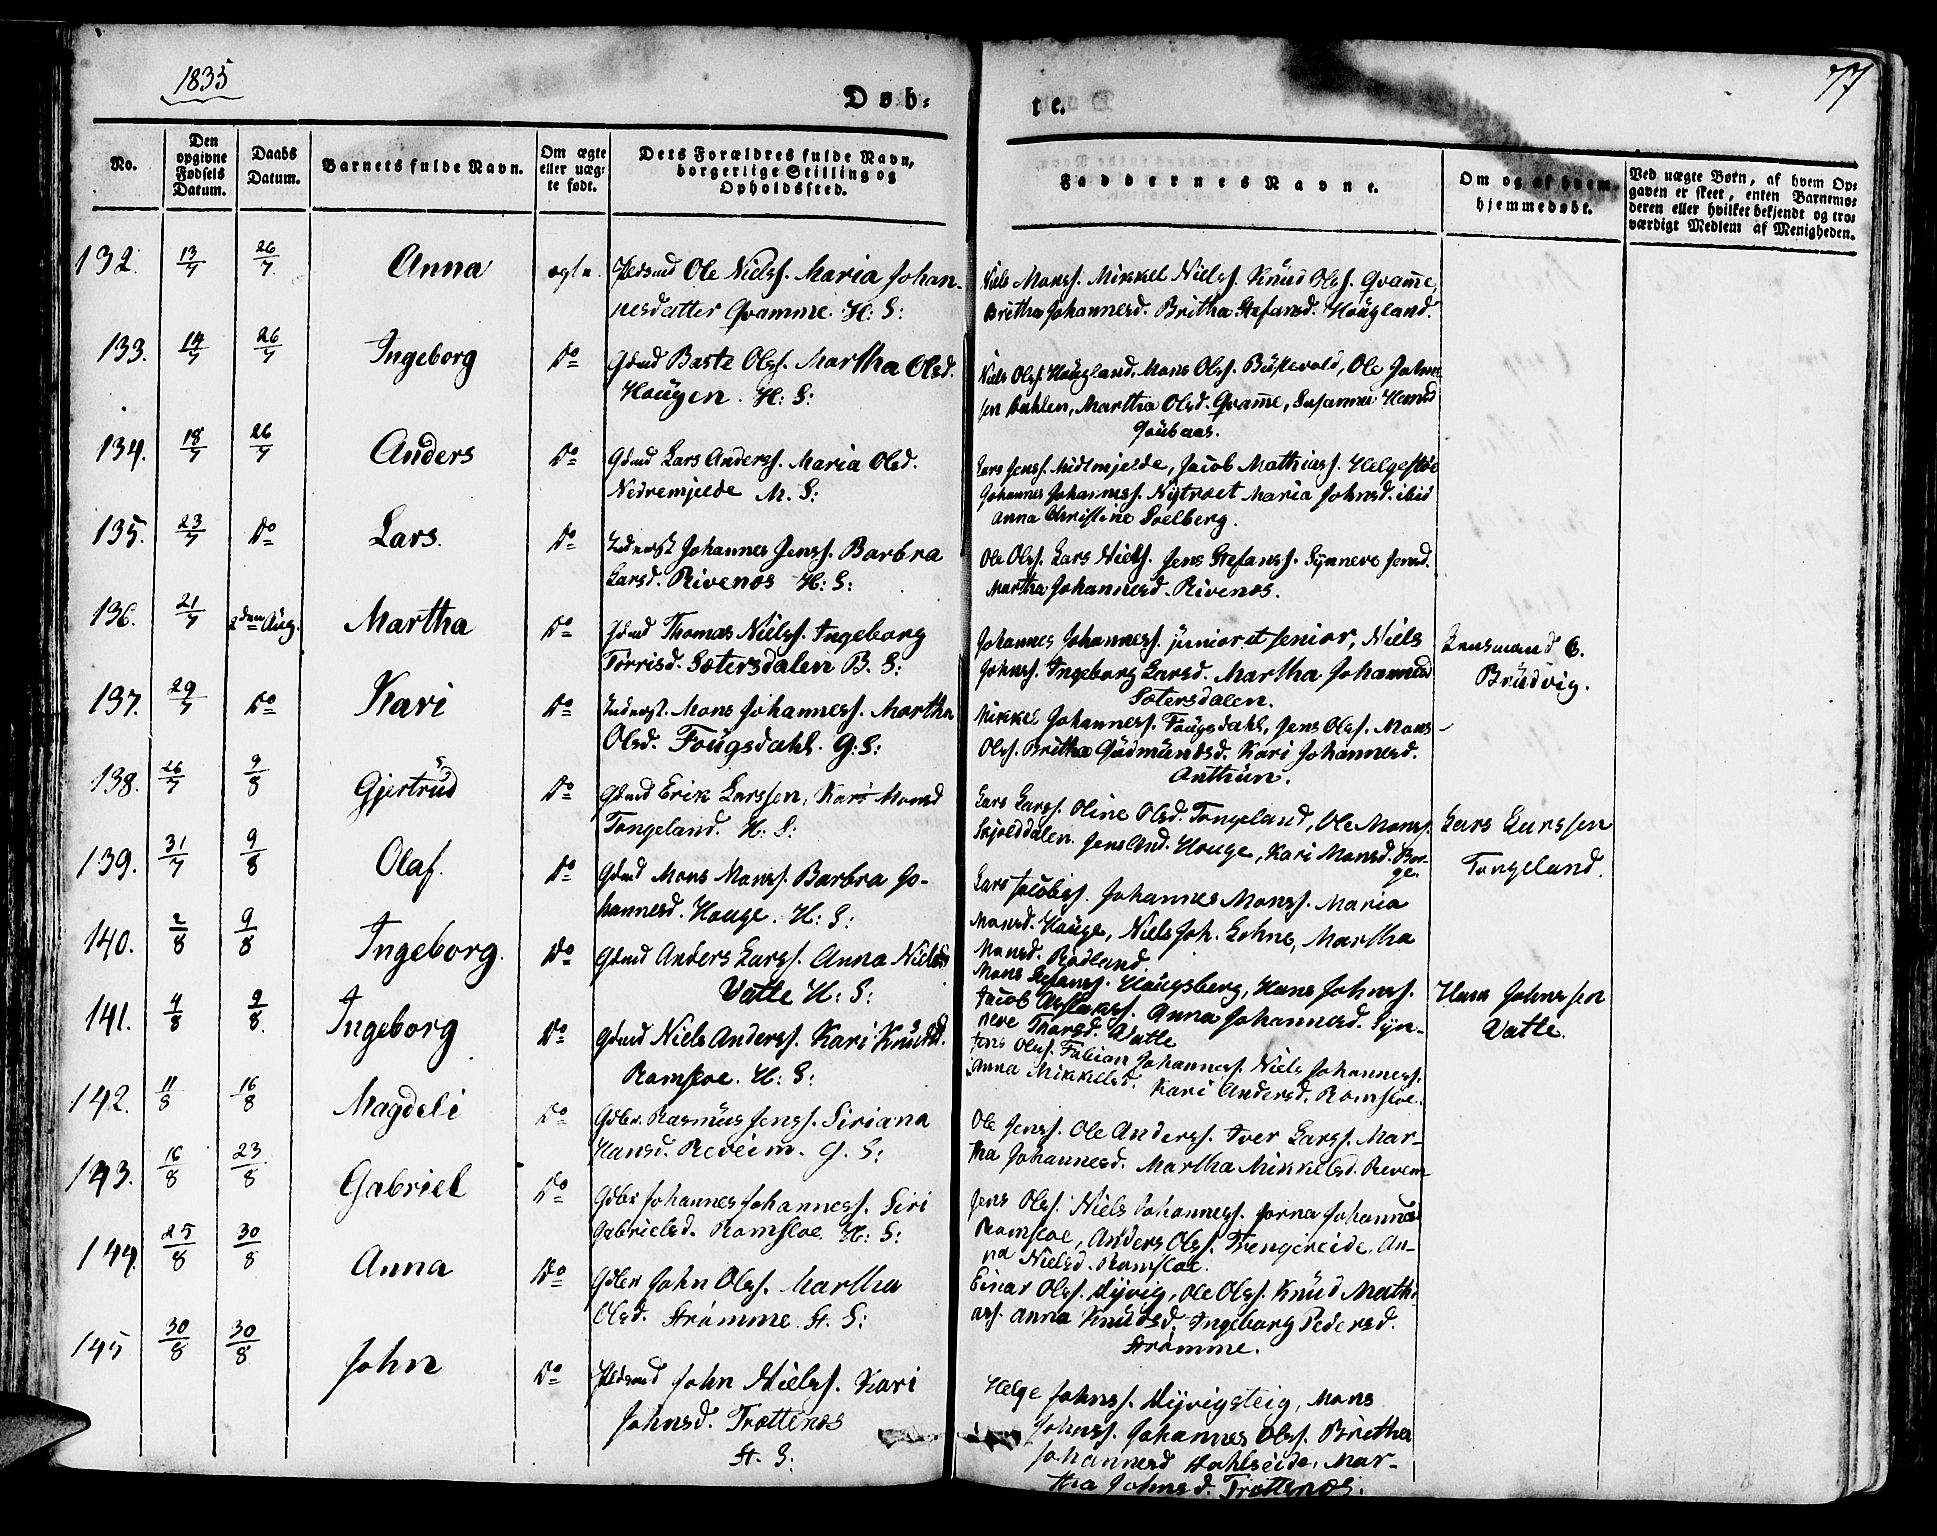 1835
77
Døb-
te.
No.
Den opgivne Fødsels Datum.
Daabs Datum.
Barnets fulde Navn.
Om ægte eller uægte født.
Dets Forældres fulde Navn, borgerlige Stilling og Opholdssted.
Faddernes Navne.
Om og af hvem hjemmedøbt.
Ved uægte Børn, af hvem Opgaven er skeet, enten Barnemoderen eller hvilket bekjendt og troværdigt Medlem af Menigheden.
132. 13/7 26/7. Anna
Ole Nielss. Maria Johan-
nesdatter Qvamme. H: S:
Niels Monss. Mikkel Nielss. Knud Olss. Qvam̅e,
Britha Johannesd. Britha Stefansd. Hougland.
133. 14/7 26/7 Ingeborg Do
Gdmd Baste Olss. Martha Olsd.
Hougen. H: S:
Niels Olss. Hougland, Mons Olss. Ole
Martha Olsd. Qvam̅e,
134. 18/7 26/7 Anders Do
Gdmd Lars Anderss. Maria Olsd.
Nedremjelde M. S:
Lars Jenss. Midtmjelde, Jacob Mathiass. Helgesføe
Johannes Johanness. Nÿtræet Maria Johnsd. ibid
Anna Christine Soelberg.
135. 23/7 Do Lars. Do
Inderst Johannes Jenss. Barbra
Larsd. Rivenæs H: S:
Ole Olss. Lars Nielss. Jens Stefanss. Synneve Jensd.
Martha Johannesd. Rivenæs.
136. 21/7 2den Aug. Martha Do
Gdmd Thomas Nielss. Ingeborg
Torrisd. Sætersdalen B. S:
Johannes Johanness. junior et senior, Niels
Johnss. Ingeborg Larsd. Martha Johannesd
Sætersdalen.
Lensmand
Brudvig.
137. 29/7 Do Kari Do
Inderst. Mons Johanness. Martha
Olsd. Fougsdahl. G: S:
Mikkel Johanness. Fougsdahl, Jens Olss. Mons
Olss. Britha Gudmundsd. Kari Johannesd.
Anthun.
138. 26/7 9/8 Gjertrud Do
Gdmd Erik Larssen, Kari Monsd
Tongeland. H: S:
Lars Larss. Oline Olsd. Tongeland, Ole Monss.
Skjolddalen. Jens And. Houge, Kari Monsd. Bor-
ge.
Lars Larssen
Tongeland.
139. 31/7 9/8 Olaf. Do
Gdmd Mons Monss. Barbra Jo-
hannesd. Houge. H: S:
Lars Jacobss. Johannes Monss. Maria
Monsd. Houge, Niels Joh. Lohne, Martha
Monsd. Rødland.
140. 2/8 9/8 Ingeborg. Do
Gdmd Anders Larss. Anna Nielsd
Vatle H: S:
Mons Stefanss. Hougsberg, Hans Johnss.
Jacob Aslakss. Anna Johannesd. Syn-
neve Thorsd. Vatle
Hans Johnssen
Vatle.
141. 4/8 9/8. Ingeborg Do
Gdmd Niels Anderss. Kari Knudsd.
Romsloe. H: S:
Jens Olss. Fabian Johanness. Niels Johanness.
Anna Mikkelsd. Kari Andersd. Romsloe.
142. 11/8 16/8 Magdeli Do
Gdbr. Rasmus Jenss. Siriana
Hansd. Reveim. G. S:
Ole Jenss. Ole Anderss. Iver Larss. Mar-
tha Johannesd. Martha Mikkelsd. Reveim
143. 16/8 23/8 Gabriel Do
Gdbr Johannes Johanness. Siri
Gabrielsd. Romsloe H: S:
Jens Olss. Niels Johanness. Johannesd
Romsloe, Anders Olss. Trengereide, An-
na Nielsd. Romsloe.
144. 25/8 30/8 Anna Do
Gdbr John Olss. Martha
Olsd. Strømme. St. S:
Einar Olss. Myvig, Ole Olss. Knud Mathi-
ass. Anna Knudsd. Ingeborg Pedersd.
Strømme.
145 30/8 30/8 John Do
John Nielss. Kari
Johnsd. Trættenæs
St. S:
Helge Johnss. Myvigsteig, Mons
Johnss. Johannes Olss. Britha
Johannesd Mar-
tha Johnsd. Trættenæs.